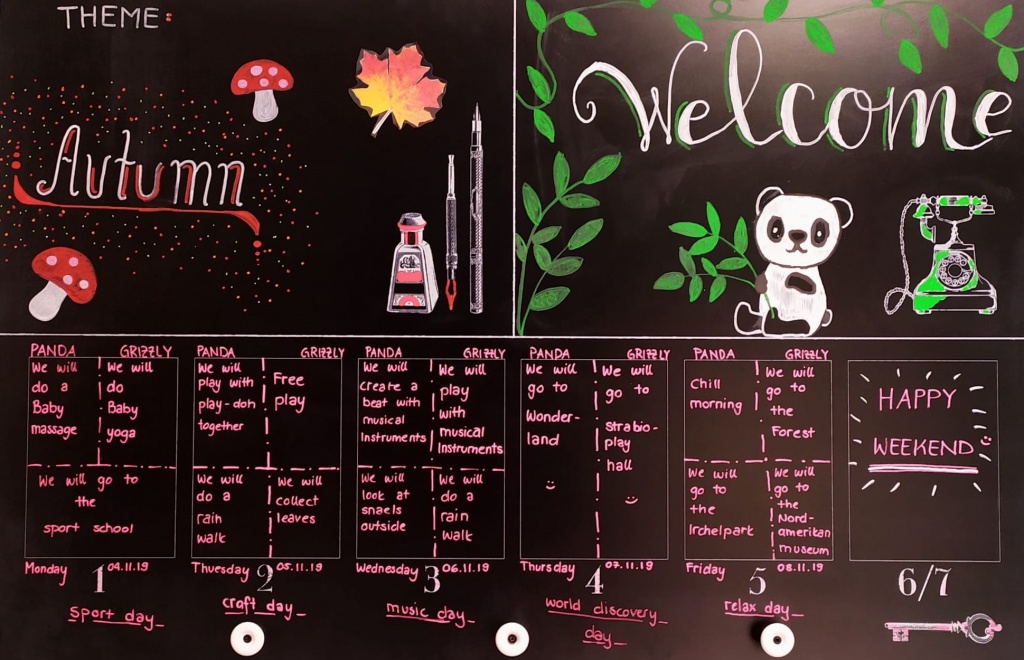 THEME:
Autumn
Welcome
PANDA GRIZZLY
We will
do a
Baby
massage
We will
do
Baby
yoga
We will go to
the
sport school
Monday 1 04.11.19
sport day
PANDA GRIZZLY
We will
play with
play-doh
together
Free
play
We will
do a
rain
walk
We will
collect
leaves
Thuesday 2 05.11.19
craft day
PANDA GRIZZLY
We will
create a
beat with
musical
Instruments
We will
play
with
musical
Instruments
We will
look at
snaels
outside
We will
do a
rain
walk
Wednesday 3 06.11.19
music day
PANDA GRIZZLY
We will
go to
Wonder-
land
We will
go to
Strabio-
play
hall
Thursday 4 07.11.19
world discovery
day
PANDA GRIZZLY
Chill
morning
We will
go to
the
Forest
We will
go to
the
Irchelpark
We will
go to
the
Nord-
amerikan
museum
Friday 5 08.11.19
relax day
HAPPY
WEEKEND
6/7